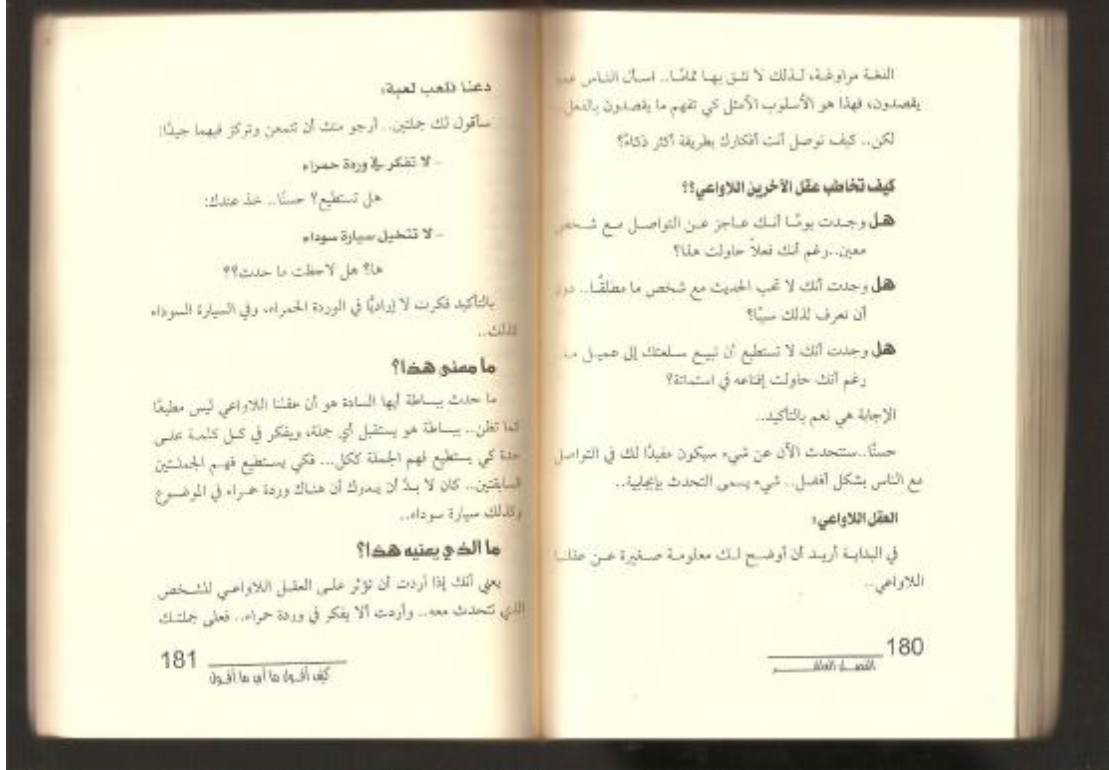 اللغة مراوغة، لذلك لا تثق بها تمامًا.. اسأل الناس عما
يقصدون، فهذا هو الأسلوب الأمثل كي تفهم ما يقصدون بالفعل..
لكن.. كيف توصل أنت أفكارك بطريقة أكثر ذكاءً؟
كيف تخاطب عقل الآخرين اللاواعي؟؟
هل وجدت يومًا أنك عاجز عن التواصل مع شخص
معين..رغم أنك فعلاً حاولت هذا؟
هل وجدت أنك لا تحب الحديث مع شخص ما مطلقًا.. دون
أن تعرف لذلك سببًا؟
هل وجدت أنك لا تستطيع أن تبيع سلعتك إلى عميل ما..
رغم أنك حاولت إقناعه في استماتة؟
الإجابة هي نعم بالتأكيد..
حسنًا..سنتحدث الآن عن شيء سيكون مفيدًا لك في التواصل
مع الناس بشكل أفضل.. شيء يسمى التحدث بإيجابية..
العقل اللاواعي:
في البداية أريد أن أوضح لك معلومة صغيرة عن عقلنا
اللاواعي..
180
الفصل العاشر
دعنا نلعب لعبة:
سأقول لك جملتين.. أرجو منك أن تتمعن وتركز فيهما جيدًا:
- لا تفكر في وردة حمراء
هل تستطيع؟ حسنًا.. خذ عندك:
- لا تتخيل سيارة سوداء
ها؟ هل لاحظت ما حدث؟؟
بالتأكيد فكرت لا إراديًا في الوردة الحمراء، وفي السيارة السوداء
كذلك..
ما معنى هذا؟
ما حدث ببساطة أيها السادة هو أن عقلنا اللاواعي ليس مطيعًا
كما تظن.. ببساطة هو يستقبل أي جملة، ويفكر في كل كلمة على
حدة كي يستطيع فهم الجملة ككل... فكي يستطيع فهم الجملتين
السابقتين.. كان لا بدّ أن يدرك أن هناك وردة حمراء في الموضوع
وكذلك سيارة سوداء..
ما الذي يعنيه هذا؟
يعني أنك إذا أردت أن تؤثر على العقل اللاواعي للشخص
الذي تتحدث معه.. وأردت ألا يفكر في وردة حمراء.. فعلى جملتك
181
كيف أقول ما أقول